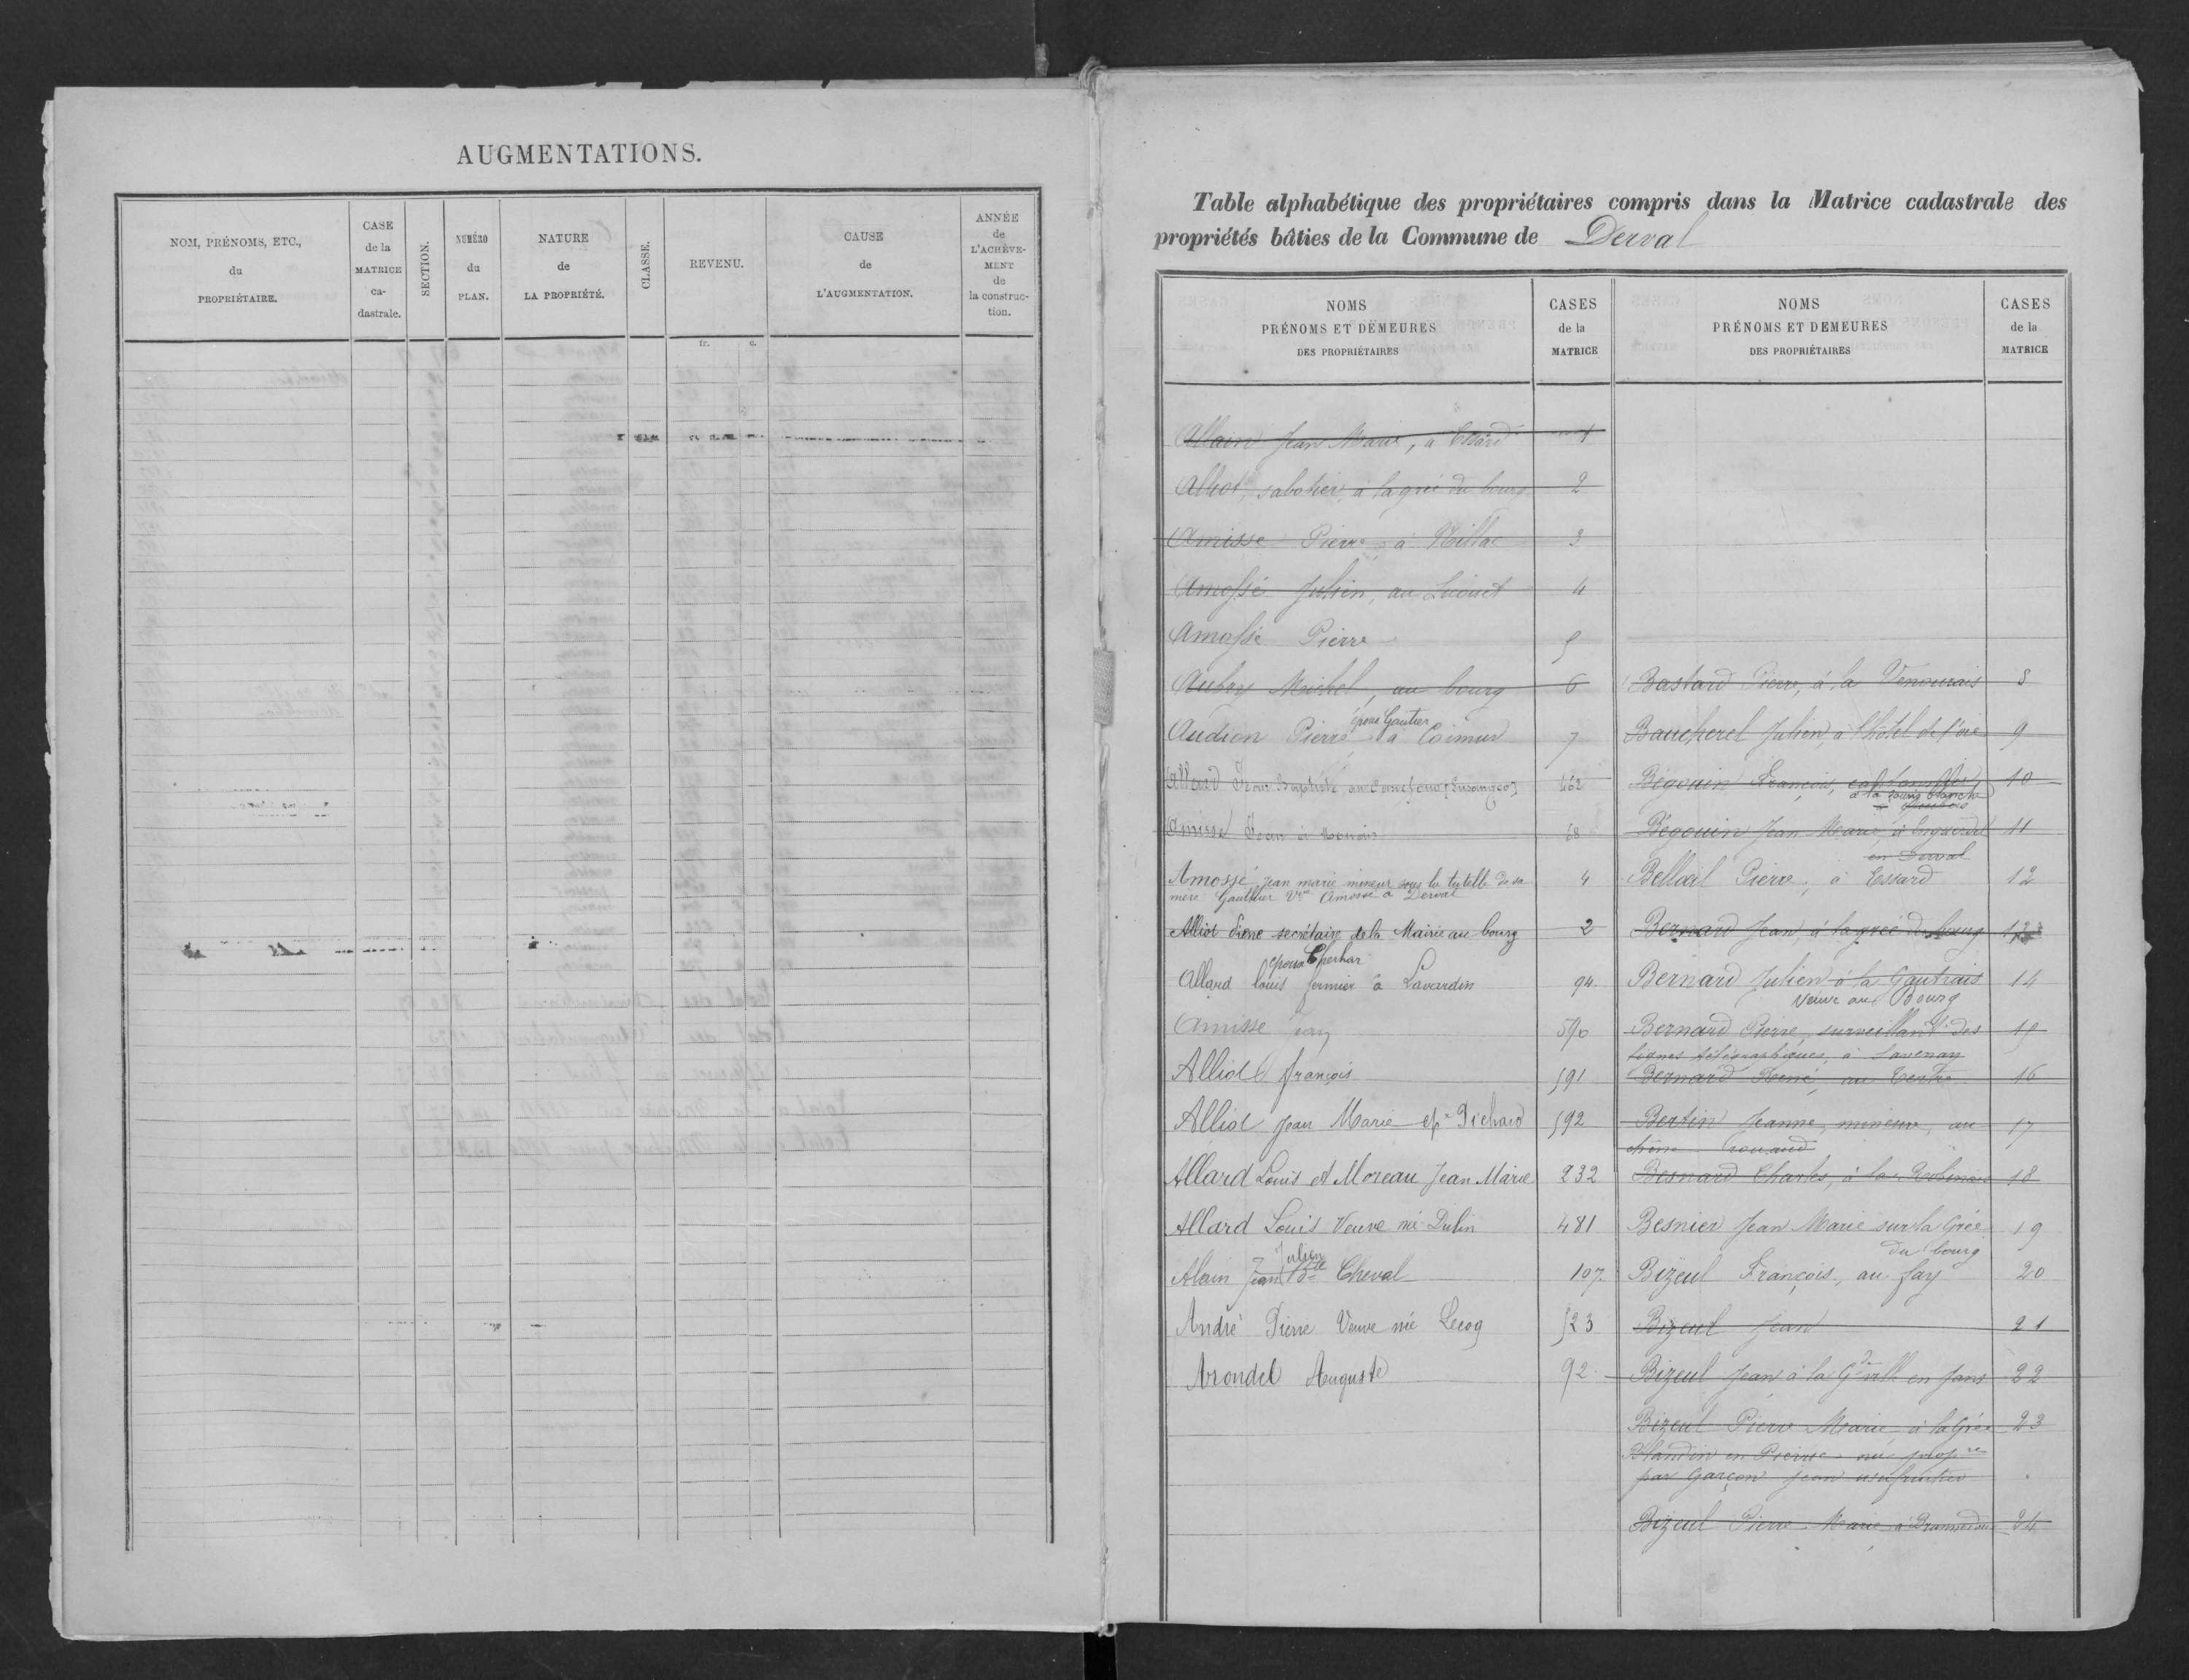 AUGMENTATIONS.
NOM, PRÉNOMS, ETC.,
du
PROPRIÉTAIRE.
CASE
de la
MATRICE
ca-
dastrale.
SECTION.
NUMÉRO
du
PLAN.
NATURE
de
LA PROPRIÉTÉ.
CLASSE.
REVENU.
fr. c.
CAUSE
de
L'AUGMENTATION.
ANNÉE
de
L'ACHÈVE-
MENT
de
la construc-
tion.
Table alphabétique des propriétaires compris dans la Matrice cadastrale des
propriétés bâties de la Commune de Derval
NOMS
PRÉNOMS ET DEMEURES
DES PROPRIÉTAIRES
CASES
de la
MATRICE
Allain Jean Marie, à Essard 1
Alliot, sabotier, à la grée du bourg 2
Amisse Pierre, à 3
Amossé Julien, au 4
Amossé Pierre 5
Aubry Michel, au bourg 6
épouse Gautier
Audion Pierre à Coimur 7
Allard Jean Baptiste 462
Amisse Jean à 68
Amossé jean marie mineur sous la tutelle de sa 4
mère Gaulthier Vve Amossé à Derval
Alliot Pierre secrétaire de la Mairie au bourg 2
époux
Allard louis fermier à Lavardin 94
Amisse Jean 590
Alliot françois 591
Alliot Jean Marie ép. Pichard 592
Allard Louis et Moreau Jean Marie 232
Allard Louis Veuve né Dulin 481
Julien
Alain Jean Bte Cheval 107
André Pierre Veuve née Lecoq 523
Arondel Auguste 92
NOMS
PRÉNOMS ET DEMEURES
DES PROPRIÉTAIRES
CASES
de la
MATRICE
Bastard Pierre, à la Vénourais 8
Baucherel Julien, à l'hôtel de l'oie 9
Bégouin François, 10
à la
Bégouin Jean Marie, à 11
en Derval
Bellœil Pierre, à Essard 12
Bernard Jean, à la grée du bourg 13
Bernard Julien à la Gautrais 14
Veuve au Bourg
Bernard Pierre, surveillant des 15
lignes télégraphiques, à Savenay
Bernard René, au Tertre 16
Bertin Jeanne, mineure, au 17
chêne
Besnard Charles, à la 18
Besnier Jean Marie sur la Grée 19
du bourg
Bizeul François, au fay 20
Bizeul Jean 21
Bizeul Jean à la Gde ville en Jans 22
Bizeul Pierre Marie, à la Grée 23
Blandin en Pierric nu propre
par Garçon Jean usufruitier
Bizeul Pierre Marie, à 24